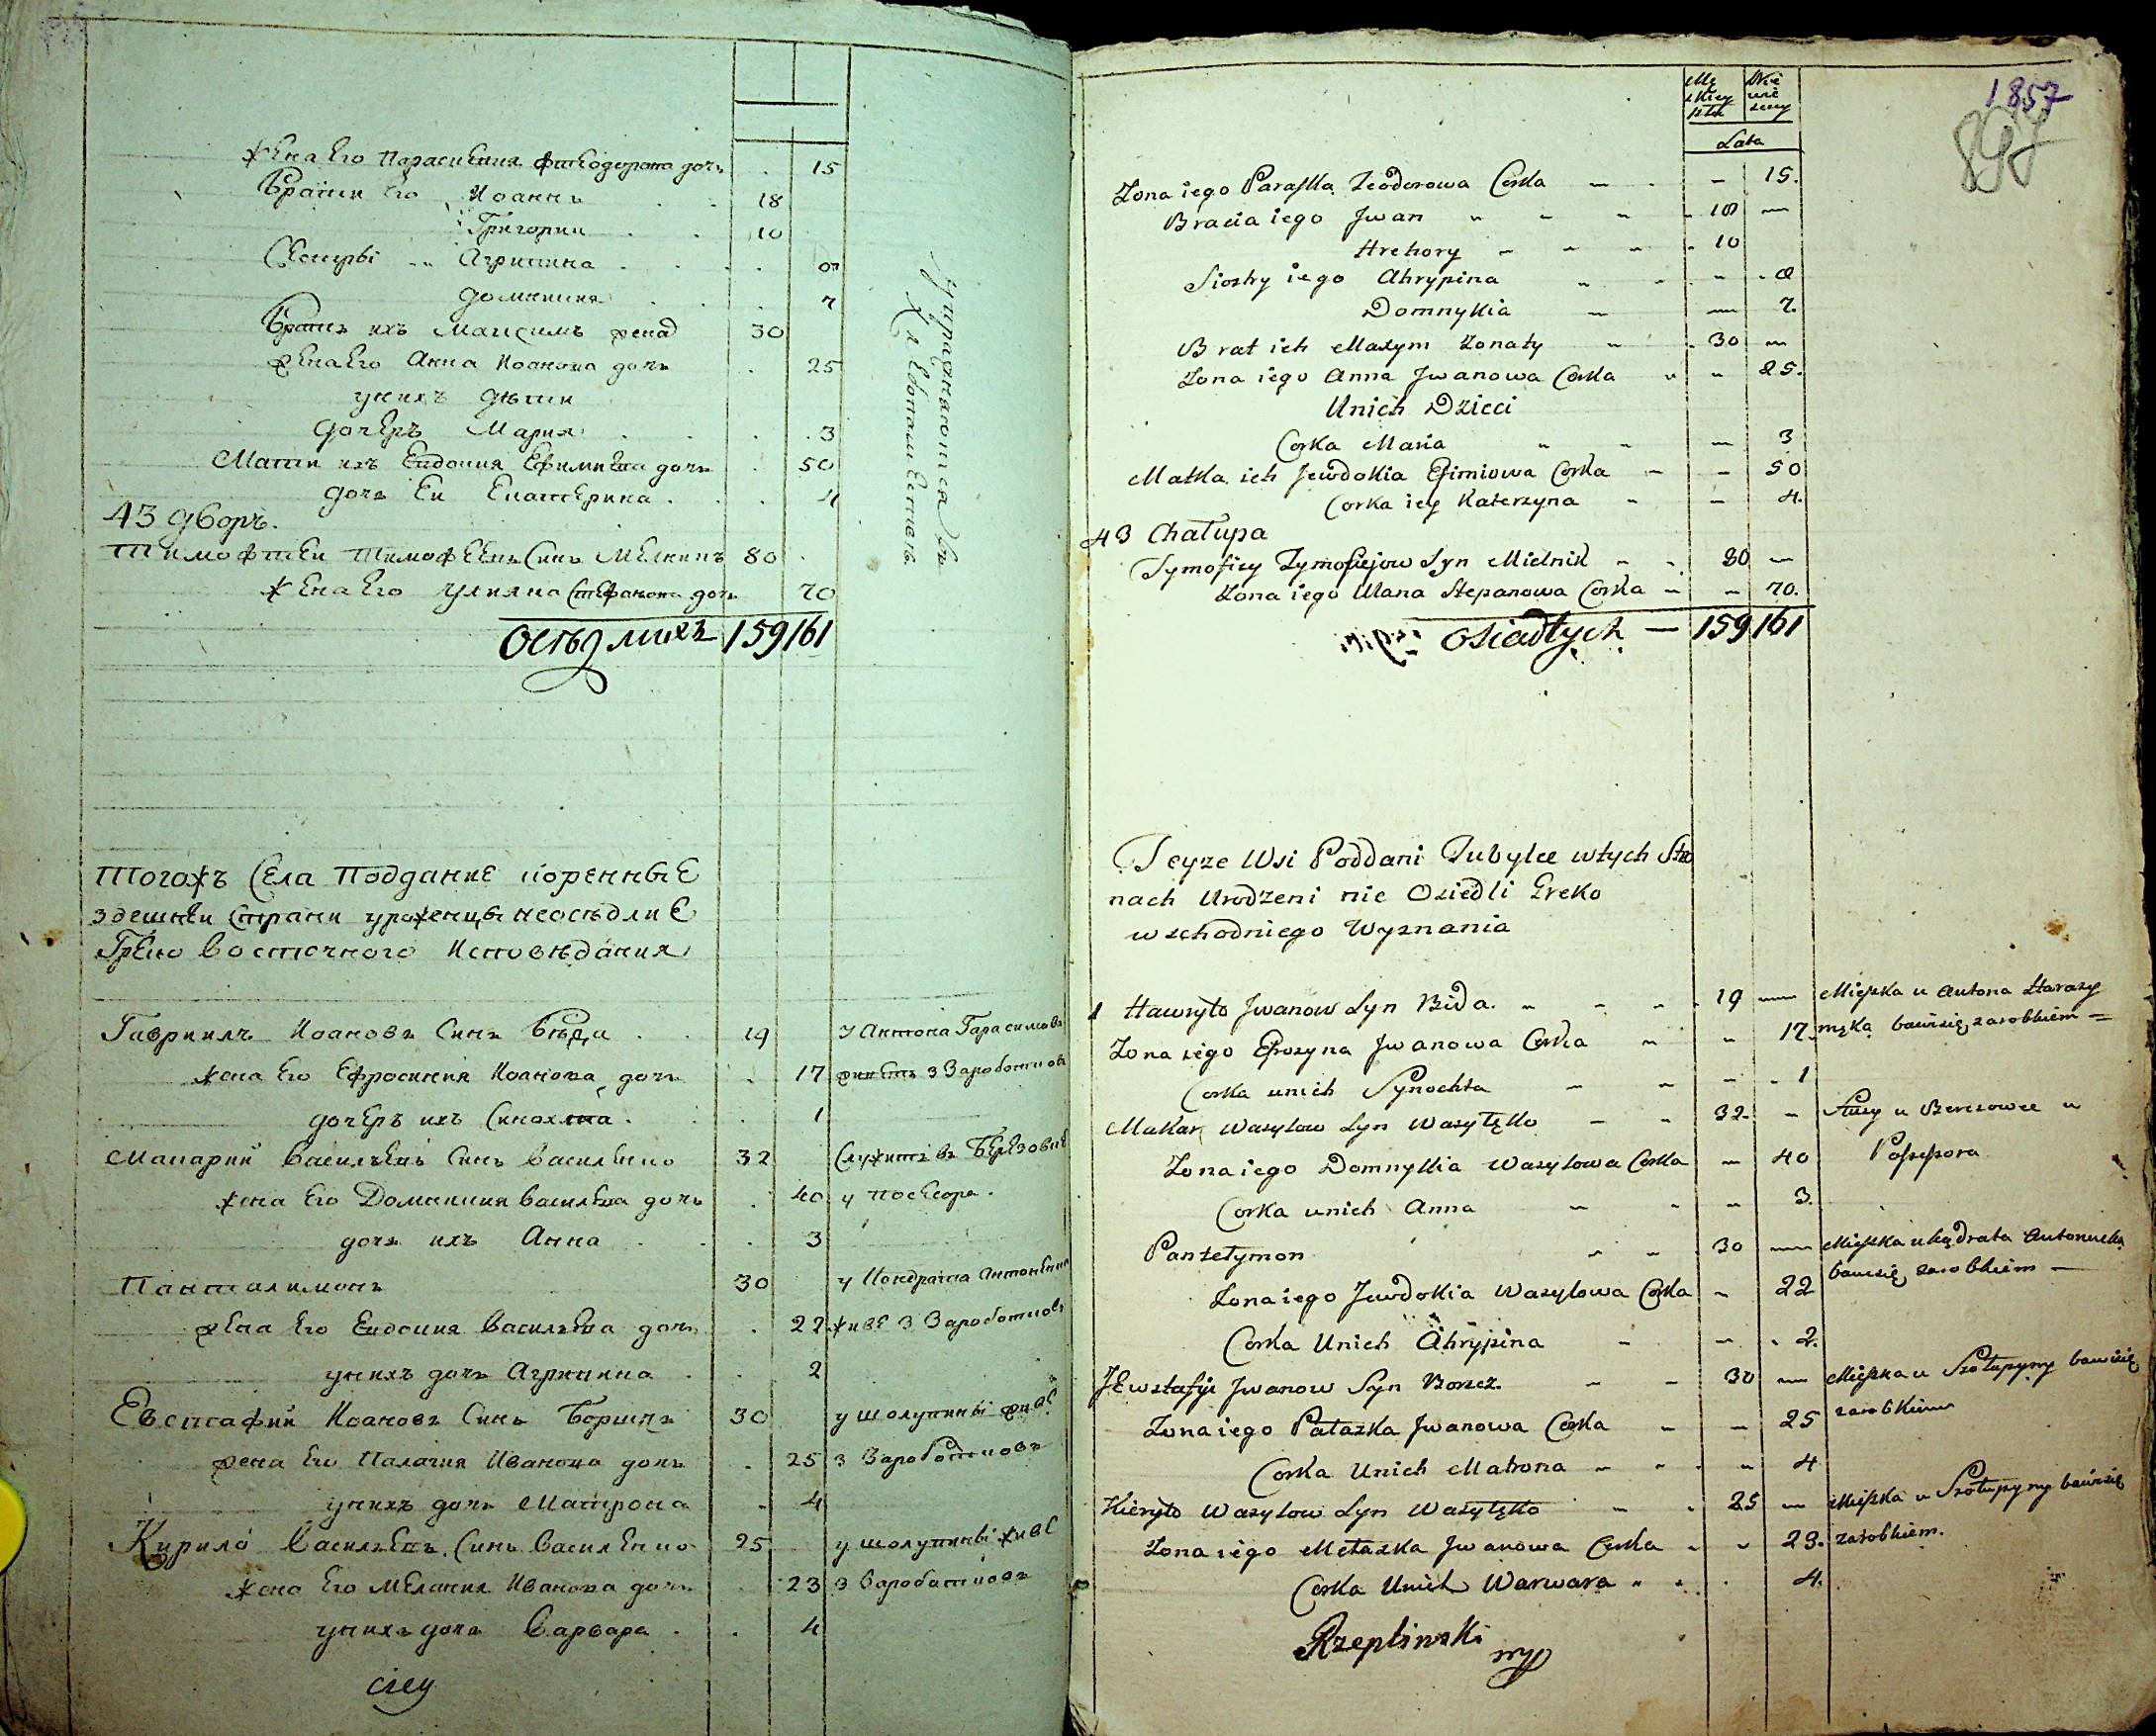 Жена Его Параскевия Фтеодорова дочь . 15
Братия Его Иоаннъ . . 18
Григории . . 10
Сестры „ Агрипина . . . .
Домникия . . . 7
Братъ ихъ Максимъ женад 30
Жена Его Анна Иоанова дочь . 25
у нихъ дѣти
дочерь Мария . . . 3
Мати ихъ Евдокия Ефимиева дочь . 50
дочь Еи Екатерина . . . 4
43 дворъ.
Тимофтеи Тимофеевъ Синъ Мелникъ 80 .
Жена Его Улияна Стефанова дочь 70
Осѣдлихъ 159 161
Тогожъ Села Поддание коренные
здешнеи страни уроженцы неосѣдлие
Греко восточного Исповѣдания
Гавриилъ Иоановъ Синъ Бѣда . . 19 у Антона Гарасимова
жена Его Ефросиния Иоанова дочь . 17 живетъ з Заработковъ
дочерь ихъ Синохта . . . 1
Макарий Василъевъ Синъ Василенко 32 Служитъ въ Березовке
жена Его Домникия Василева дочь . 40 у посесора .
дочь ихъ Анна . . . 3
Панталимонъ 30 у Кондрата Антонюка
жена Его Евдокия Василъева дочь . 22 живе з Заработковъ
у нихъ дочь Агрипина . . 2
Евстафий Иоановъ Синъ Борщъ 30 у шолупины живе
жена Его Палагия Иванова дочь . 25 з Заработковъ
у нихъ дочь Матрона - 4
Кирило Василъевъ Синъ Василенко 25 у шолупины живе
жена Его Мелания Иванова дочь 23 з Заработковъ
у нихъ дочь Варвара . . 4
1857
897
Męzkiey płci Niewieściey
Lata
Zona iego Paraska Teodorowa Corka - 15.
Bracia iego Jwan 18 -
Hrehory 10
Siostry iego Ahrypina - 8
Domnykia - 7.
Brat ich Maxym Zonaty 30 -
Zona iego Anna Jwanowa Corka - 25.
Unich Dzieci
Corka Maria - 3
Matka ich Jewdokia Efimiowa Corka - 50
Corka iey Katerzyna - 4.
43 Chałupa
Tymofiey Tymofiejow Syn Mielnik 80 -
Zona iego Ulana Stepanowa Corka - 70.
Osiadłych - 159 161
Teyże Wsi Poddani Tubylce w tych Stro
nach Urodzeni nie Osiedli Greko
wschodniego Wyznania
1 Hawryło Jwanow Syn Bida. 19 - Mięszka u Antona Harasy
Zona iego Efrozyna Jwanowa Corka - 17. bawisię zarobkiem =
Corka unich Synochta - 1
Makar Wasylow Syn Wasyłęko 32. - Służy u Berezowce u
Zona iego Domnykia Wasylowa Corka - 40 Possessora
Corka unich Anna - 3.
Pantełymon 30 - Mięszka u Kądrata Antoniuka
Zona iego Jewdokia Wasylowa Corka - 22 bawisię zarobkiem -
Corka Unich Ahrypina - 2.
JEwstafyi Jwanow Syn Borszcz. 30 - Mięszka u Szołupyny bawisię
Zona iego Pałazka Jwanowa Corka - 25 zarobkiem
Corka Unich Matrona - 4
Kieryło Wasylow Syn Wasyłęko 25 - Mięszka u Szołupyny bawisię
Zona iego Mełaszka Jwanowa Corka - 23. zarobkiem.
Corka Unich Warwara 4.
Rzepliński mp